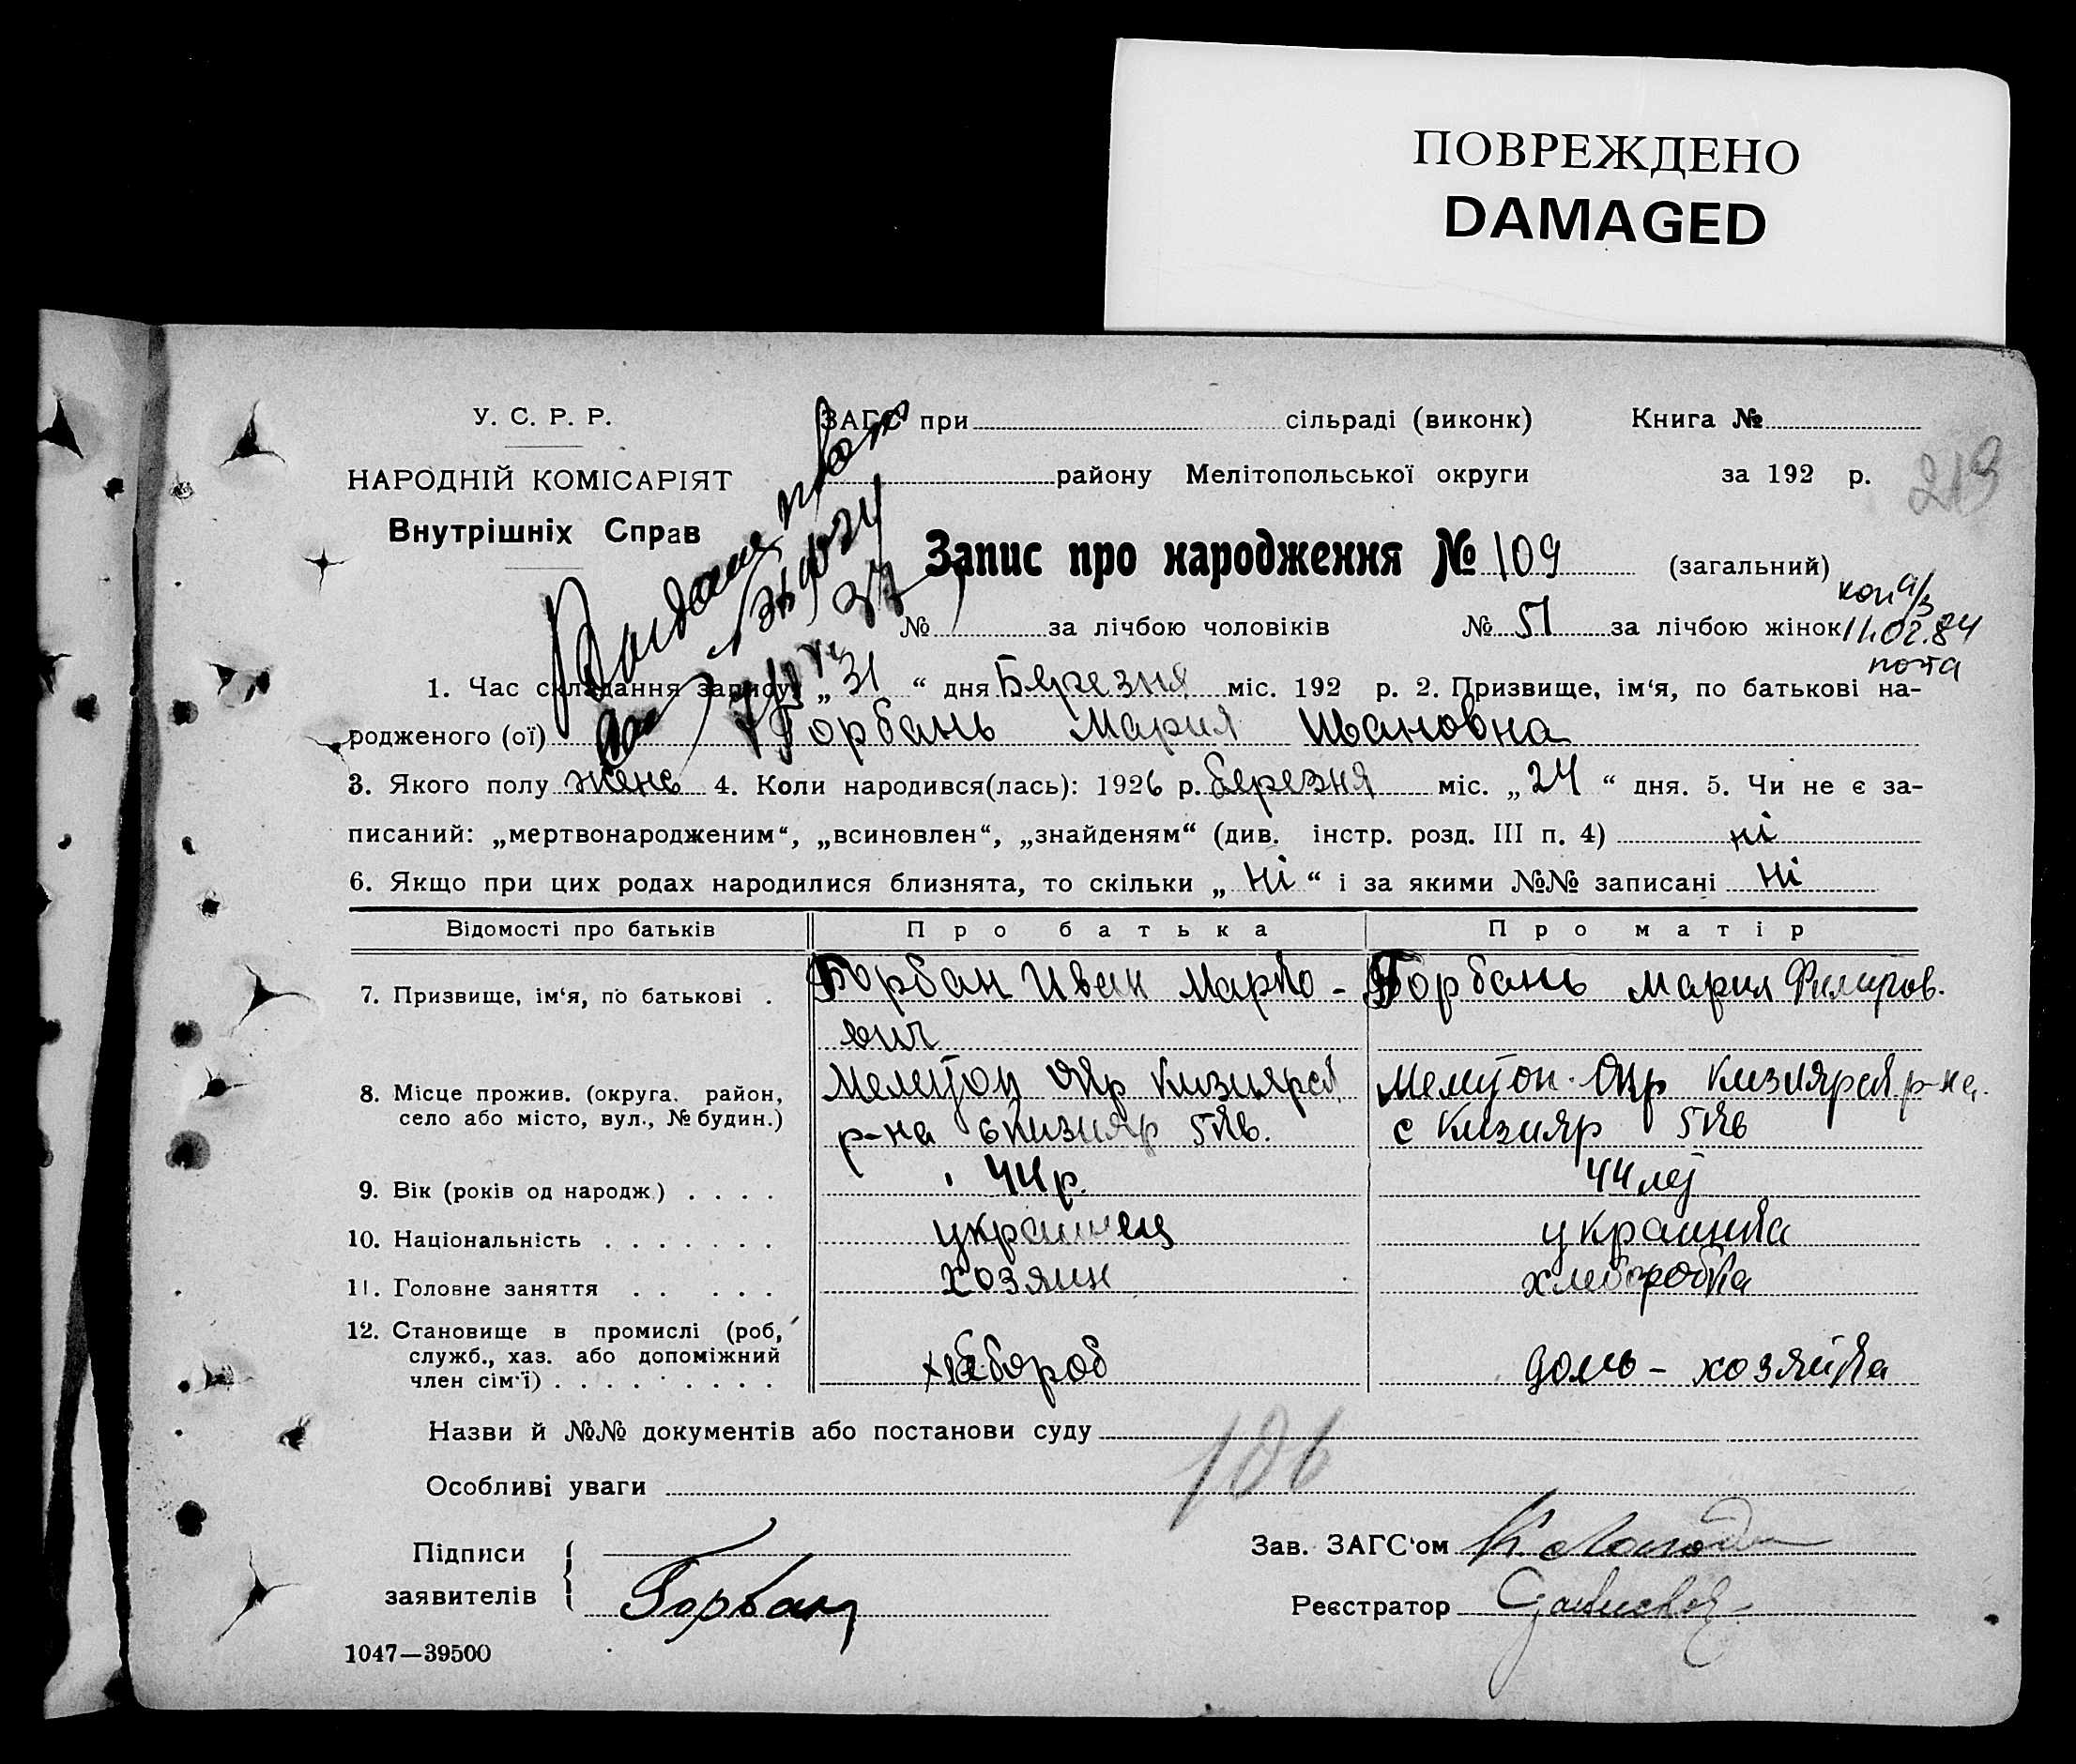 ПОВРЕЖДЕНО
DAMAGED
У. С. Р. Р.
ЗАГС при сільраді (виконк) Книга №
НАРОДНІЙ КОМІСАРІЯТ
району Мелітопольської округи за 192 р.
213
Внутрішніх Справ
Запис про народження № 109 (загальний)
коп
№ за лічбою чоловіків № 51 за лічбою жінок 11.02.84
1. Час складання запису „ 31 “ дня Березня міс. 192 р. 2. Призвище, ім‘я, по батькові на-
родженого (ої) Горбань Мария Ивановна
3. Якого полу женс 4. Коли народився(лась): 1926 р. березня міс. „ 24 “ дня. 5. Чи не є за-
писаний: „мертвонародженим“, „всиновлен“, „знайденям“ (див. інстр. розд. III п. 4) ні
6. Якщо при цих родах народилися близнята, то скільки „ ні “ і за якими №№ записані ні
Відомості про батьків Про батька Про матір
7. Призвище, ім‘я, по батькові . Горбан Иван Марко- Горбань Мария Филипов.
вич
8. Місце прожив. (округа, район, Мелитоп Окр Кизиярск Мелитоп. Окр Кизиярск р-на.
село або місто, вул., № будин.) р-на с Кизияр 5кв. с Кизияр 5кв
9. Вік (років од народж.) . . . . 44 р. 44 лет
10. Національність . . . . . . . украинец украинка
11. Головне заняття . . . . . хозяин хлеборобка
12. Становище в промислі (роб,
служб., хаз. або допоміжний
член сім‘ї) . . . . . . . . . хлебороб домо-хозяйка
Назви й №№ документів або постанови суду
106
Особливі уваги
Підписи Зав. ЗАГС‘ом
заявителів Горбань Реєстратор
1047—39500